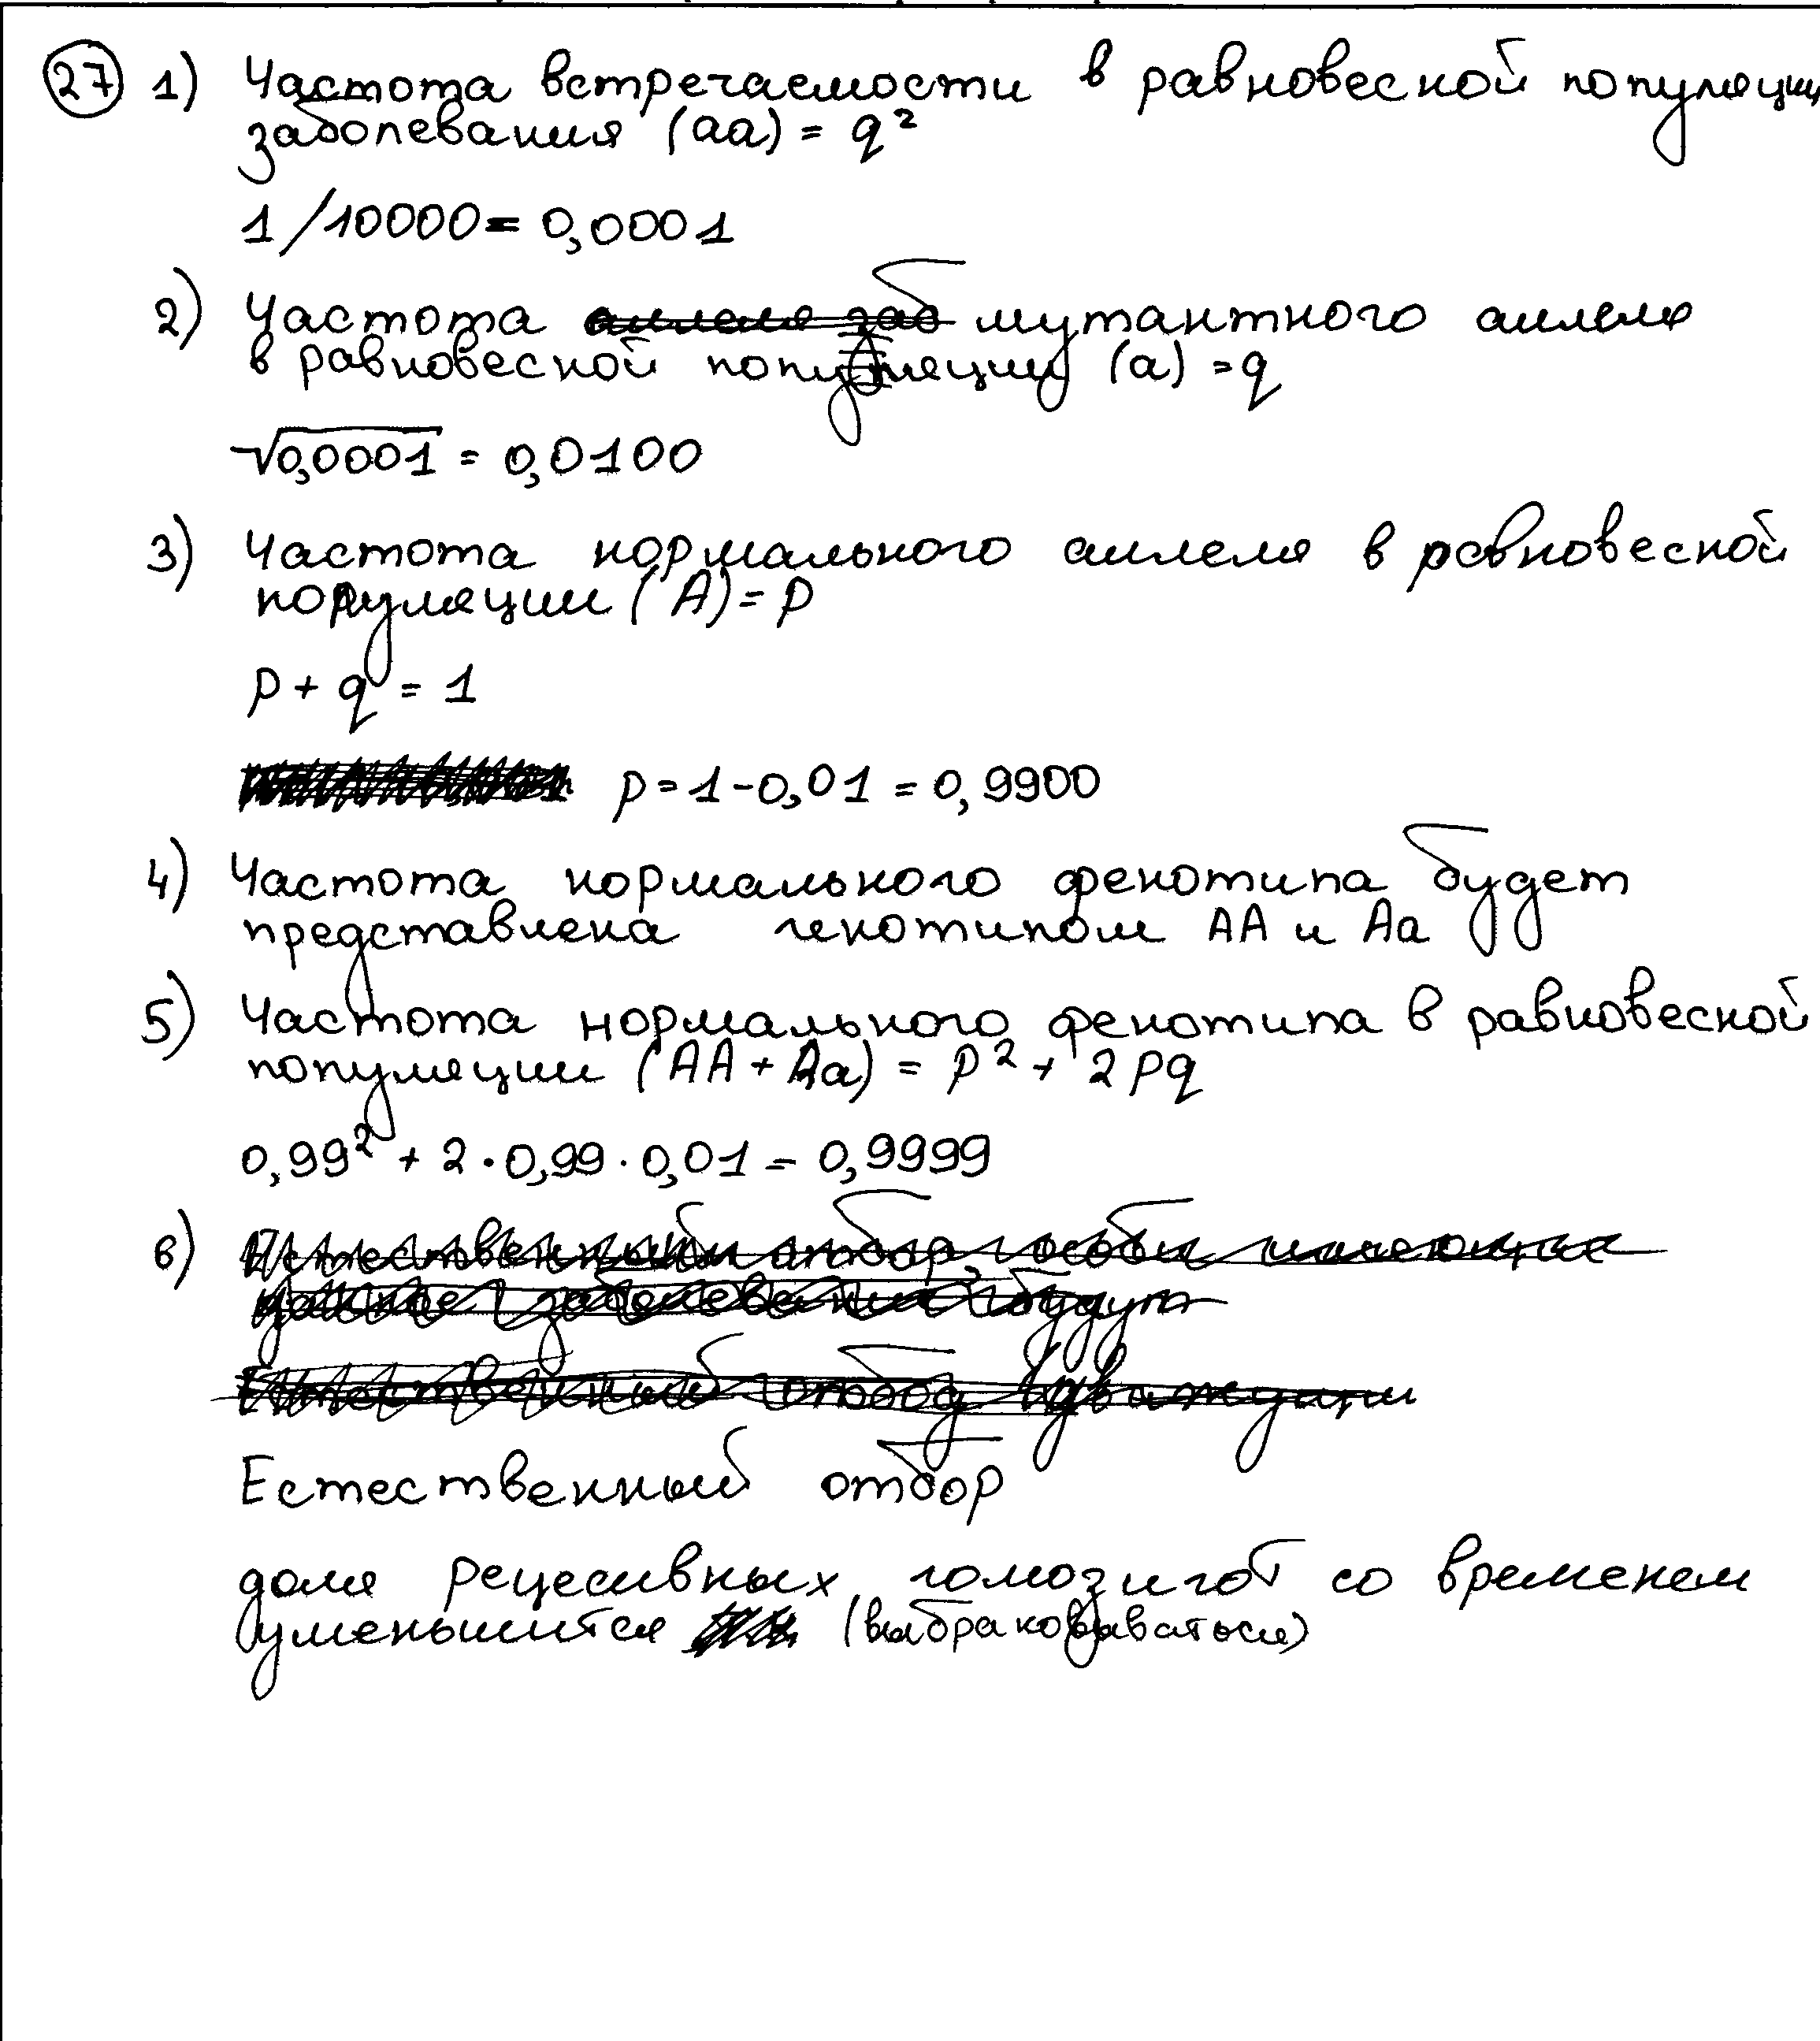 27 1) Частота встречаемости в равновесной популяци
заболевания (аа) = q²
1/10000 = 0,0001
2) Частота мутантного аллеля
в равновесной популяции (а) = q
√0,0001 = 0,0100
3) Частота нормального аллеля в равновесной
популяции (А) = p
p + q = 1
p = 1 - 0,01 = 0,9900
4) Частота нормального фенотипа будет
представлена генотипом АА и Аа
5) Частота нормального фенотипа в равновесной
популяции (АА + Аа) = p² + 2pq
0,99² + 2 · 0,99 · 0,01 = 0,9999
6)
Естественный отбор
доля рецесивных гомозигот со временем
уменьшится (выбраковываться)